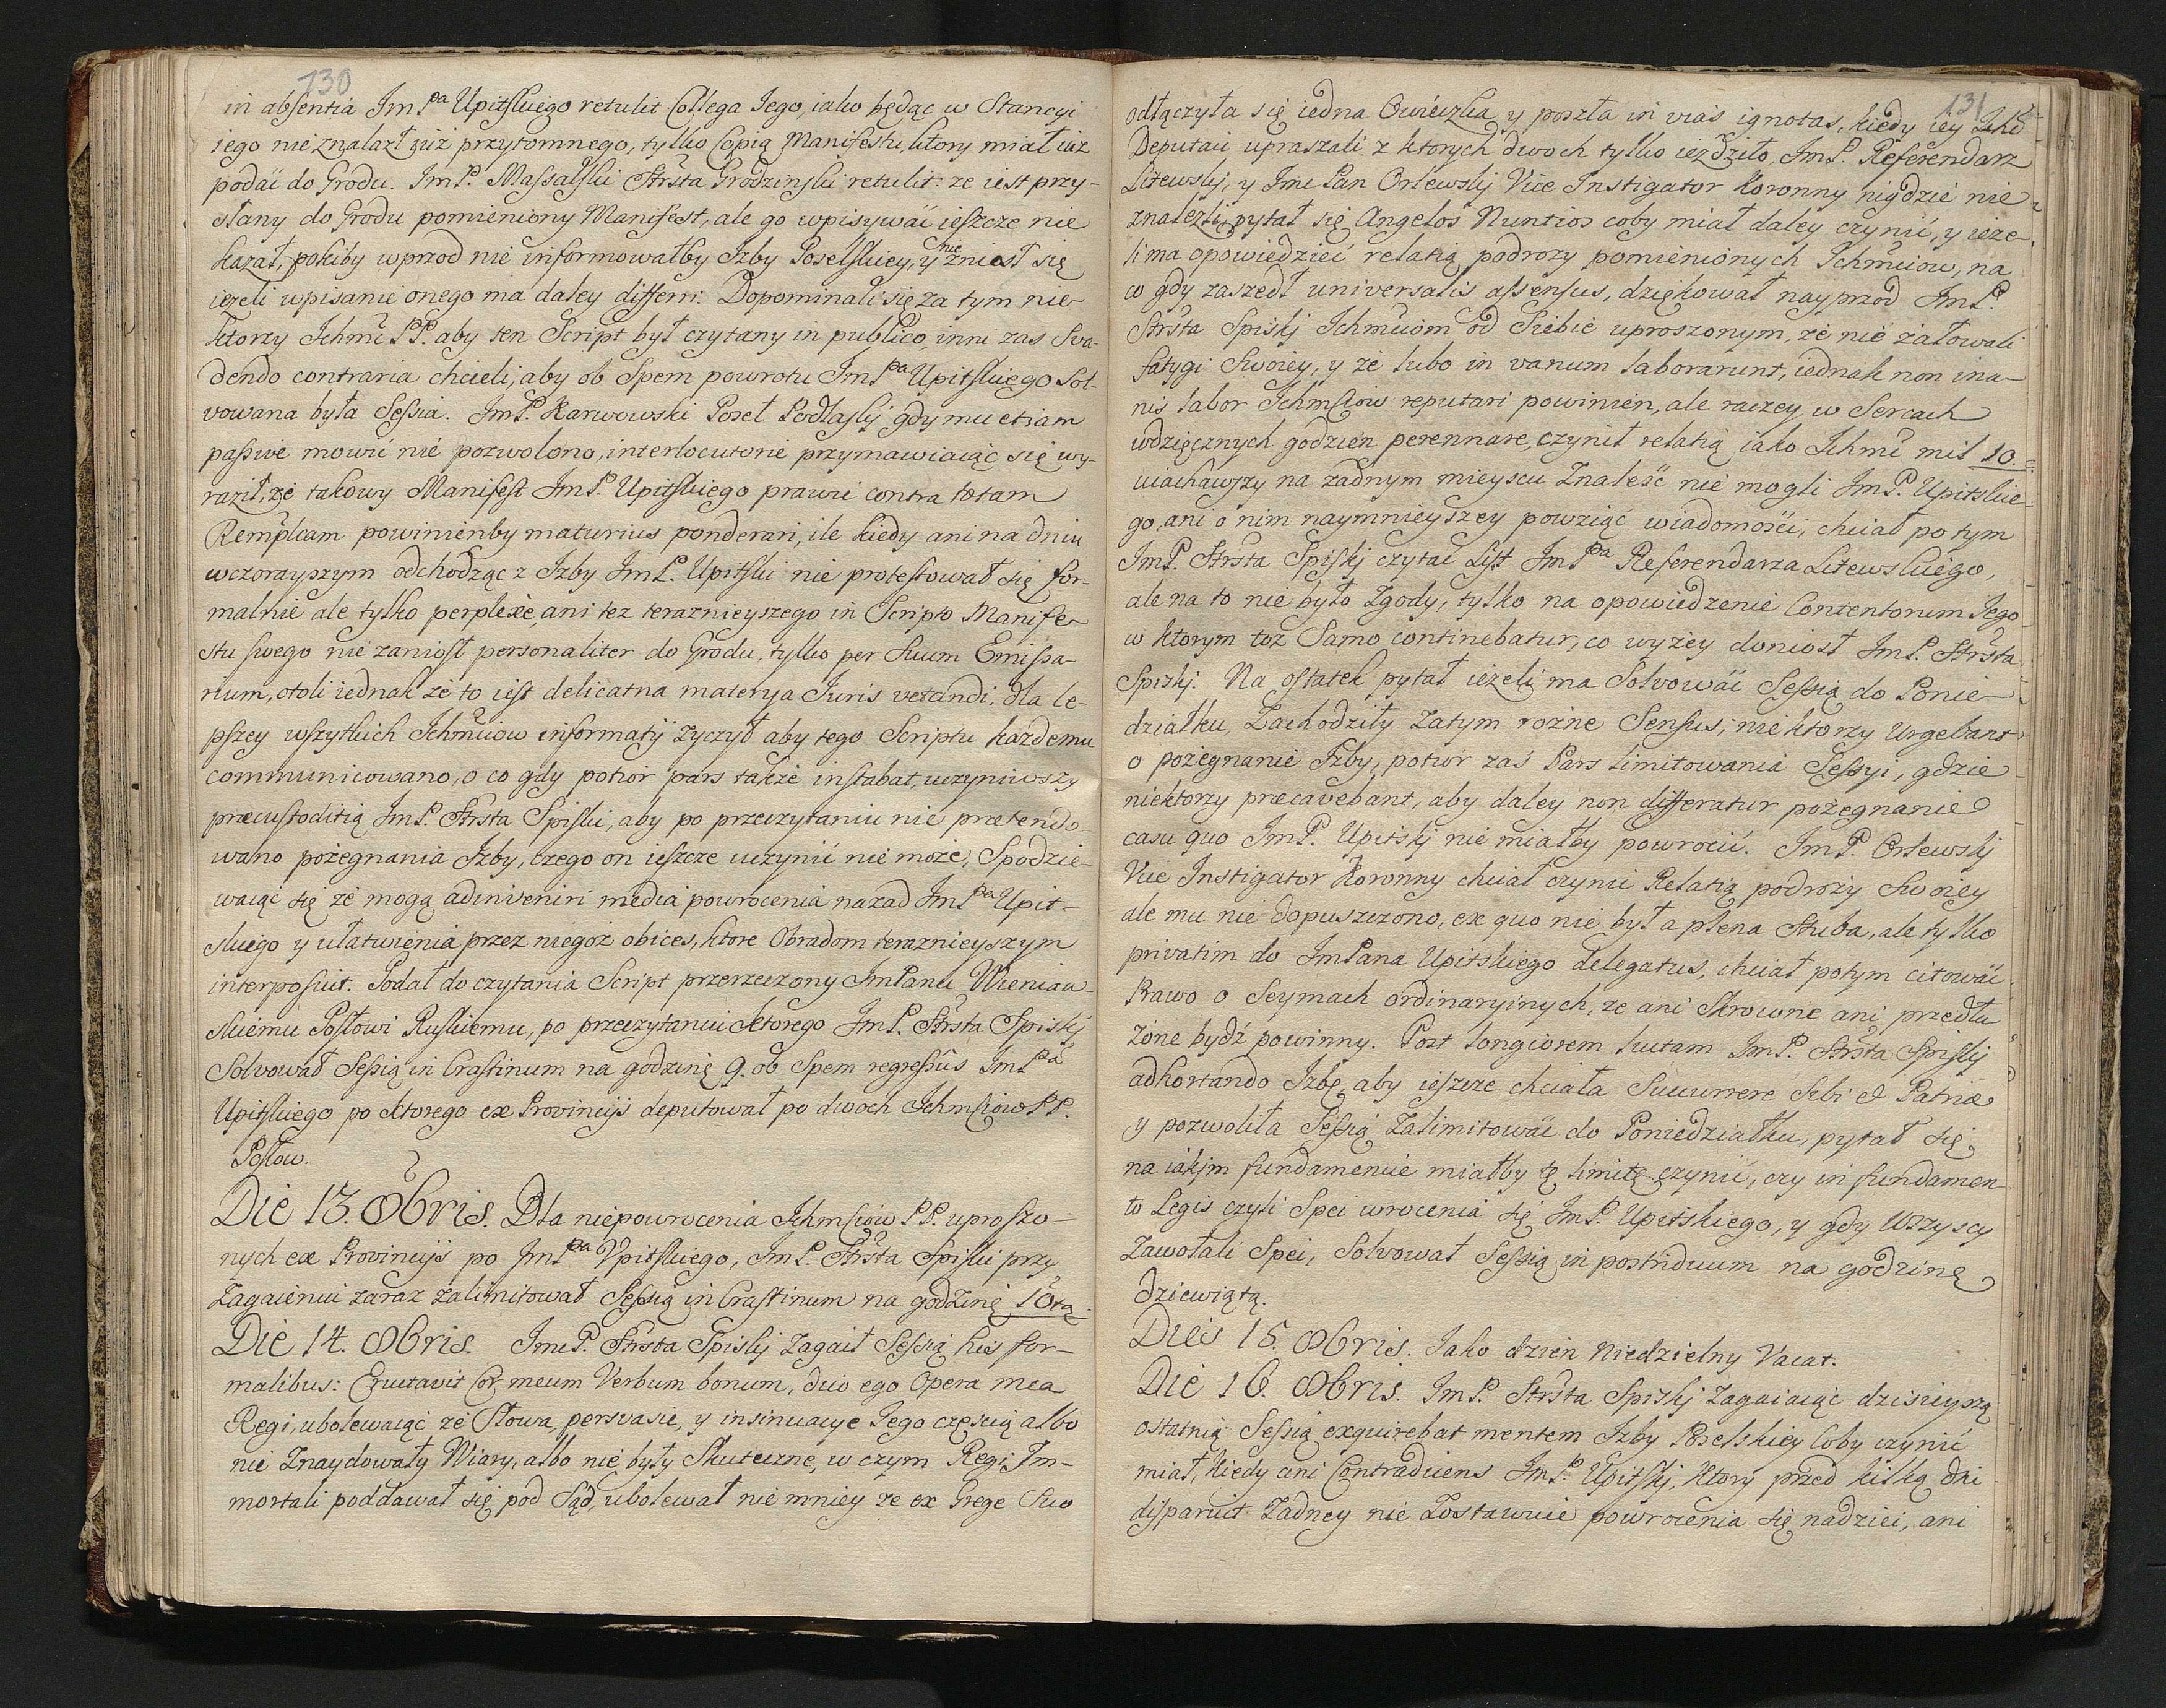 130
in absentia ImPa Upitskiego retulit Collega Jego, iako będąc w Stancyi
iego nie znalazł już przytomnego, tylko Copią Manifestu, ktory miał iuż
podać do Grodu. ImP. Massalski Strsta Grodzinski retulit: że iest przy-
słany do Grodu pomieniony Manifest, ale go wpisywać ieszcze nie
kazał, pokiby wprzod nie informowałby Izby Poselskiey, y nie zniosł się
ieżeli wpisanie onego ma daley differri. Dopominali się za tym nie-
ktorzy Ichmć PP. aby ten Script był czytany in publico, inni zas Sva-
dendo contraria chcieli, aby ob Spem powrotu ImPa Upitskiego sol-
vowana była Sessia. ImP. Karwowski Poseł Podlaskj gdy mu etiam
passive mowić nie pozwolono, interlocutorie przymawiaiąc się wy-
raził, że takowy Manifest ImP. Upitskiego prawie contra totam
Remplcam powinienby maturius ponderari, ile kiedy ani na dniu
wczorayszym odchodząc z Izby ImP. Upitski nie protestował się for-
malnie ale tylko perplexè, ani tez teraznieyszego in Scripto Manife-
stu swego nie zaniosł personaliter do Grodu, tylko per Suum Emissa-
rium, otoli iednak że to iest delicatna materya Juris vetandi, dla le-
pszey wszytkich Ichmciow informatij życzył aby tego Scriptu każdemu
communicowano, o co gdy potior pars także instabat, uczyniwszy
præcustoditią ImP. Strsta Spiski, aby po przeczytaniu nie prætendo-
wano pożegnania Izby, czego on ieszcze uczynić nie może, Spodzie-
waiąc się że mogą adinveniri media powrocenia nazad ImPa Upit-
skiego y ułatwienia przez niegoż obices, ktore Obradom teraznieyszym
interposuit. Podał do czytania Script przerzeczony ImPanu Wieniaw-
skiemu Posłowi Ruskiemu, po przeczytaniu ktorego ImP. Strsta Spiskj
Solvował Sessią in Crastinum na godzinę 9. ob Spem regressûs ImPa
Upitskiego po ktorego ex Provincijs deputował po dwoch Ichmściow PP.
Posłow.
Die 13. 8bris. Dla niepowrocenia Ichmściow PP. uproszo-
nych ex Provincijs po ImPa Upitskiego, ImP. Strsta Spiski przy
Zagaieniu zaraz zalimitował Sessią in Crastinum na godzinę 10tą.
Die 14. 8bris. ImcP. Strsta Spiskj zagaił Sessią his for-
malibus: Eructavit Cor meum Verbum bonum, dico ego Opera mea
Regi, ubolewaiąc że Słowa, persvasie, y insinuacye Jego częscią albo
nie Znaydowały Wiary, albo nie były Skuteczne, w czym Regi Im-
mortali poddawał się pod Sąd, ubolewał nie mniey że ex Grege Suo
131
odłączyła się iedna Owieczka y poszła in vias ignotas, kiedy iey Ichć
Deputaci upraszali z ktorych dwoch tylko ieździło, ImP. Referendarz
Litewskj, y Imc Pan Orłewskj Vice Instigator Koronny nigdzie nie
znalezli, pytał się Angelos Nuntios coby miał daley czynić, y ieże-
li ma opowiedzieć relatią podrozy pomienionych Ichmciow, na
co gdy zaszedł universalis assensus, dziękował nayprzod ImP.
Strsta Spiskj Ichmciom od Siebie uproszonym, że nie żałowali
fatygi Swoiey, y że lubo in vanum laborarunt, iednak non ina-
nis labor Ichmściow reputari powinien, ale raczey w Sercach
wdzięcznych godzien perennare, czynił relatią iako Ichmć mil 10.
uiachawszy na żadnym mieyscu Znaleść nie mogli ImP. Upitskie-
go, ani o nim naymnieyszey powziąć wiadomości, chciał po tym
ImP. Strsta Spiskj czytać List ImPa Referendarza Litewskiego,
ale na to nie było Zgody, tylko na opowiedzenie Contentorum Jego
w ktorym toż Samo continebatur, co wyżey doniosł ImP. Strsta
Spiskj. Na ostatek pytał ieżeli ma Solvować Sessią do Ponie-
działku, Zachodziły Zatym rożne Sensus, niektorzy Urgebant
o pożegnanie Izby, potior zaś Pars limitowania Sessyi, gdzie
niektorzy præcavebant, aby daley non differatur pożegnanie
casu quo ImP. Upitskj nie miałby powrocić. ImP. Orłewskj
Vice Instigator Koronny chciał czynić Relatią podroży Swoiey
ale mu nie dopuszczono, ex quo nie był a plena Stuba, ale tylko
privatim do ImPana Upitskiego delegatus, chciał potym citować
Prawo o Seymach ordinaryinych, że ani Skrocone ani przedłu
żone bydź powinny. Post longiorem luctam ImP. Strsta Spiskj
adhortando Izbę, aby ieszcze chciała Succurrere Sibi et Patriæ
y pozwoliła Sessią Zalimitować do Poniedziałku, pytał się
na iakim fundamencie miałby tę limitę czynić, czy in fundamen
to Legis czyli Spei wrocenia się ImP. Upitskiego, y gdy Wszyscy
Zawołali Spei, Solvował Sessią in postriduum na godzinę
dziewiątą.
Dieis 15. 8bris. Jako dzien Niedzielny Vacat.
Die 16. 8bris. ImP. Strsta Spiskj Zagaiaiąc dzisieyszą
ostatnią Sessią exquirebat mentem Izby Poselskiey Coby czynić
miał, kiedy ani Contradicens ImP. Upitskj, ktory przed kilką dni
disparuit Zadney nie Zostawuie powrocenia się nadziei, ani